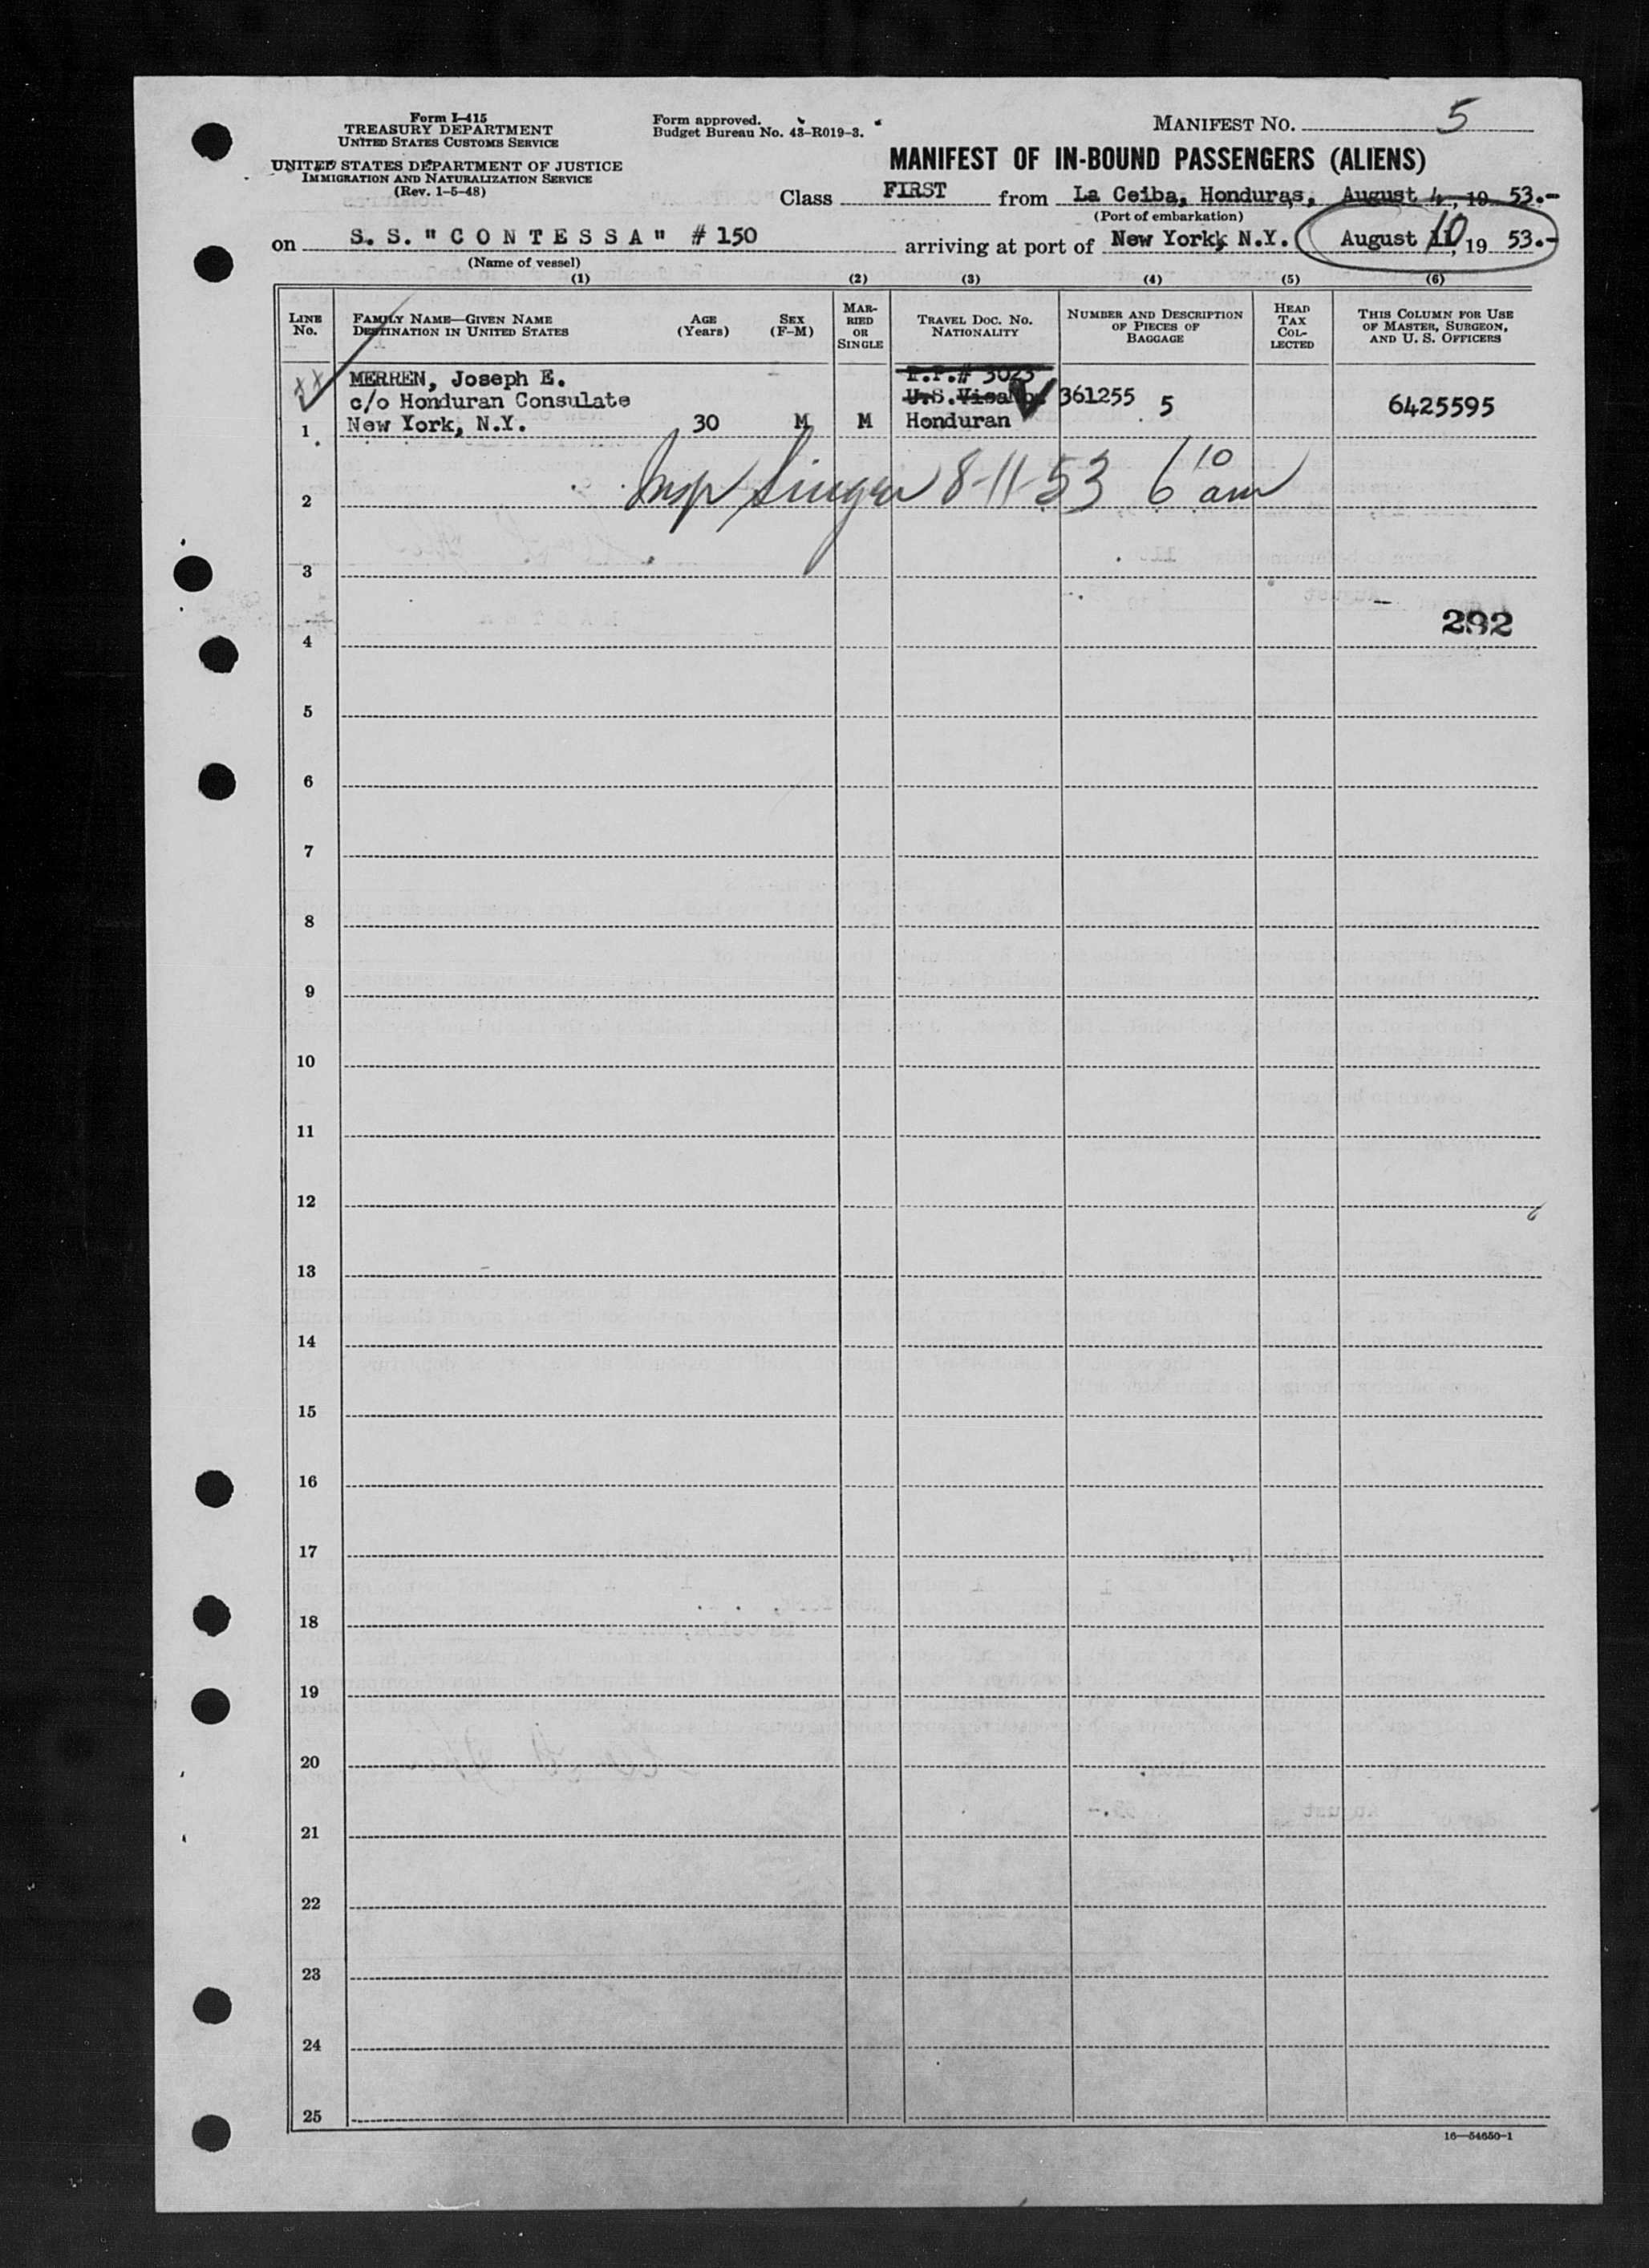 Form I-415
TREASURY DEPARTMENT
UNITED STATES CUSTOMS SERVICE
UNITED STATES DEPARTMENT OF JUSTICE
IMMIGRATION AND NATURALIZATION SERVICE
(Rev. 1-5-48)
Form approved.
Budget Bureau No. 43-R019-3.
MANIFEST NO. 5
MANIFEST OF IN-BOUND PASSENGERS (ALIENS)
Class FIRST from La Ceiba, Honduras, August 4, 19 53.-
(Port of embarkation)
on S. S. "CONTESSA" # 150 arriving at port of New York, N.Y. August 10, 19 53.-
(Name of vessel)
(1) (2) (3) (4) (5) (6)
LINE No.
FAMILY NAME—GIVEN NAME
DESTINATION IN UNITED STATES
AGE (Years)
SEX (F-M)
MARRIED OR SINGLE
TRAVEL DOC. NO.
NATIONALITY
NUMBER AND DESCRIPTION OF PIECES OF BAGGAGE
HEAD TAX COLLECTED
THIS COLUMN FOR USE OF MASTER, SURGEON, AND U. S. OFFICERS
xx MERREN, Joseph E. P.P.# 3023
c/o Honduran Consulate U.S. Visa No. 361255 5 6425595
1 New York, N.Y. 30 M M Honduran
Insp Singer 8-11-53 6 10 am
2
3
292
4
5
6
7
8
9
10
11
12
13
14
15
16
17
18
19
20
21
22
23
24
25
16—54650-1